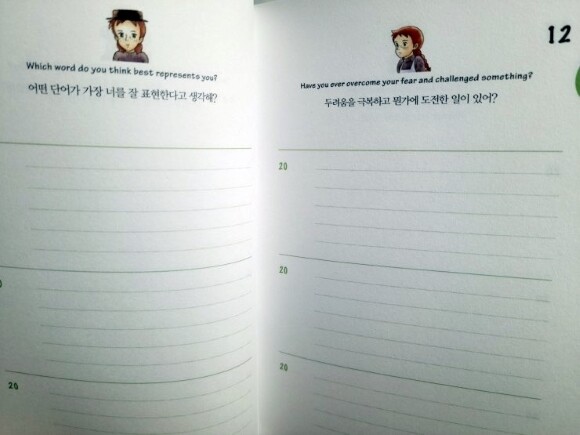 Which word do you think best represents you?
어떤 단어가 가장 너를 잘 표현한다고 생각해?
20
12
Have you ever overcome your fear and challenged something?
두려움을 극복하고 뭔가에 도전한 일이 있어?
20
20
20